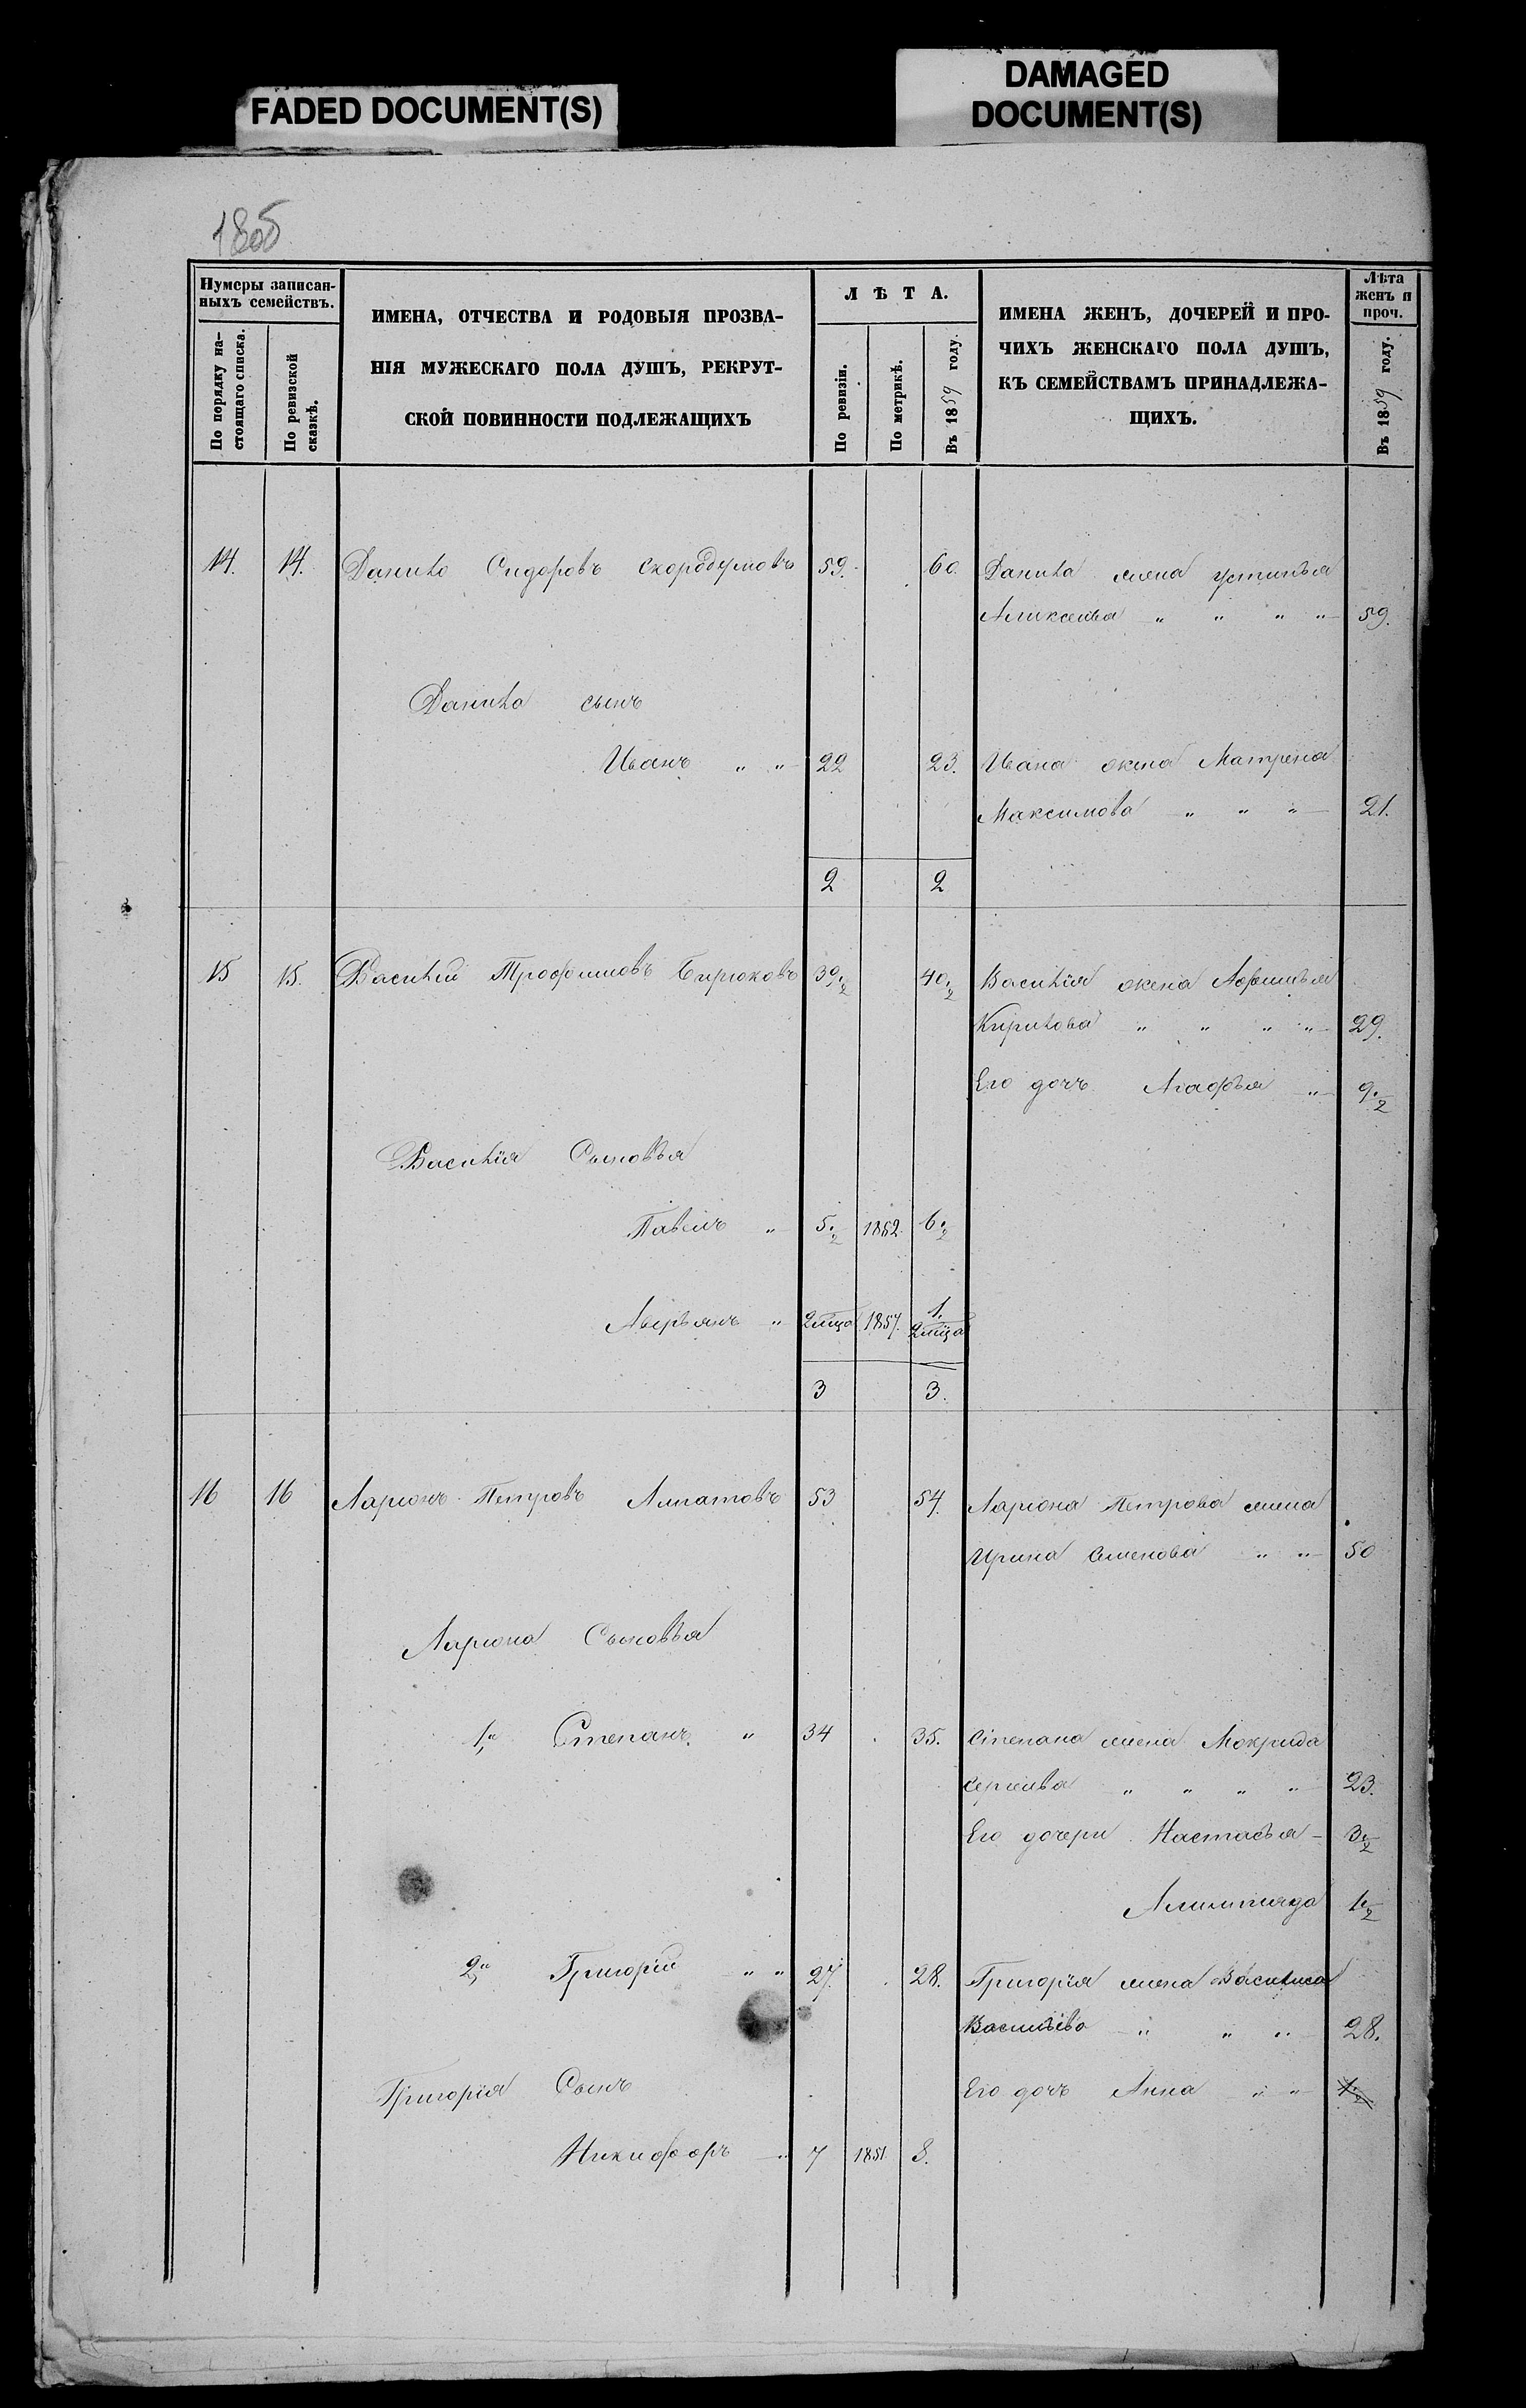 FADED DOCUMENT(S)
DAMAGED
DOCUMENT(S)
1805
Нумеры записан-
ныхъ семействъ.
По порядку на-
стоящаго списка.
По ревизской
сказкѣ.
ИМЕНА, ОТЧЕСТВА И РОДОВЫЯ ПРОЗВА-
НІЯ МУЖЕСКАГО ПОЛА ДУШЪ, РЕКРУТ-
СКОЙ ПОВИННОСТИ ПОДЛЕЖАЩИХЪ
ЛѢТА.
По ревизіи.
По метрикѣ.
Въ 1859 году.
ИМЕНА ЖЕНЪ, ДОЧЕРЕЙ И ПРО-
ЧИХЪ ЖЕНСКАГО ПОЛА ДУШЪ,
КЪ СЕМЕЙСТВАМЪ ПРИНАДЛЕЖА-
ЩИХЪ.
Лѣта
женъ и
проч.
Въ 1859 году.
14. 14. Данило Сидоровъ Скородумовъ 59. 60. Данила жена Устинья
Аликсеива " " " " 59.
Данила сынъ
Иванъ " " 22 23. Ивана жена Матрена
Максимова " " " 21.
2 2
15 15. Василий Трофимовъ Бирюковъ 39.½ 40.½ Василія жена Афимья
Кирилова " " " " 29.
Его дочь Агафья " 9.½
Василія Сыновья
Павелъ " 5.½ 1852. 6.½
Аверьянъ " 2 мца 1857. 1.
2 мца
3 3.
16 16 Ларионъ Петровъ Алпатовъ 53 54. Лариона Петрова жена
Ирина Семенова " " 50
Лариона Сыновья
1й Степанъ " 34 35. Степана жена Мокрида
Сергеива " " " " 23.
Его дочери Настасья 3.½
Алимпияда 1.½
2й Григорій " " 27. 28. Григорія жена Василиса
Васильева " " " 28.
Григорія Сынъ Его дочь Анна " " 1.½
Никифоръ " 7 1851 8.